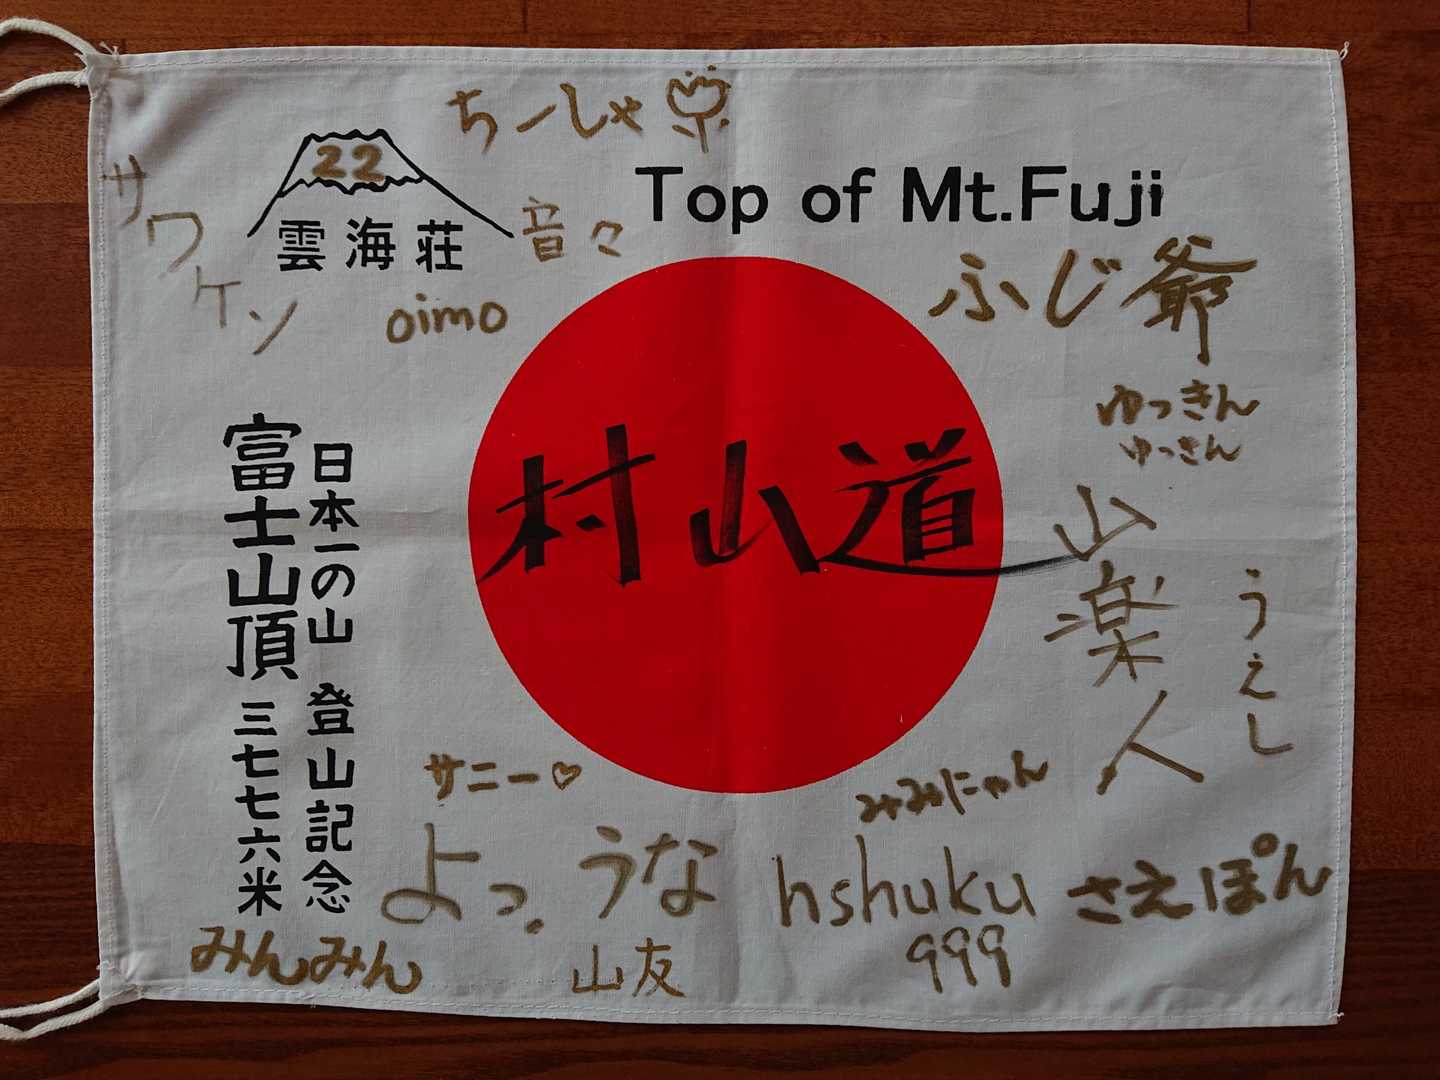 ちーしゃ
22
雲海荘
Top of Mt.Fuji
サワケン
音々
oimo
ふじ爺
ゆっきん
ゆっきん
村山道
日本一の山 登山記念
富士山頂 三七七六米
山楽人
うえし
サニー♡
みみにゃん
よっ.
うな
hshuku
999
さえぽん
みんみん
山友